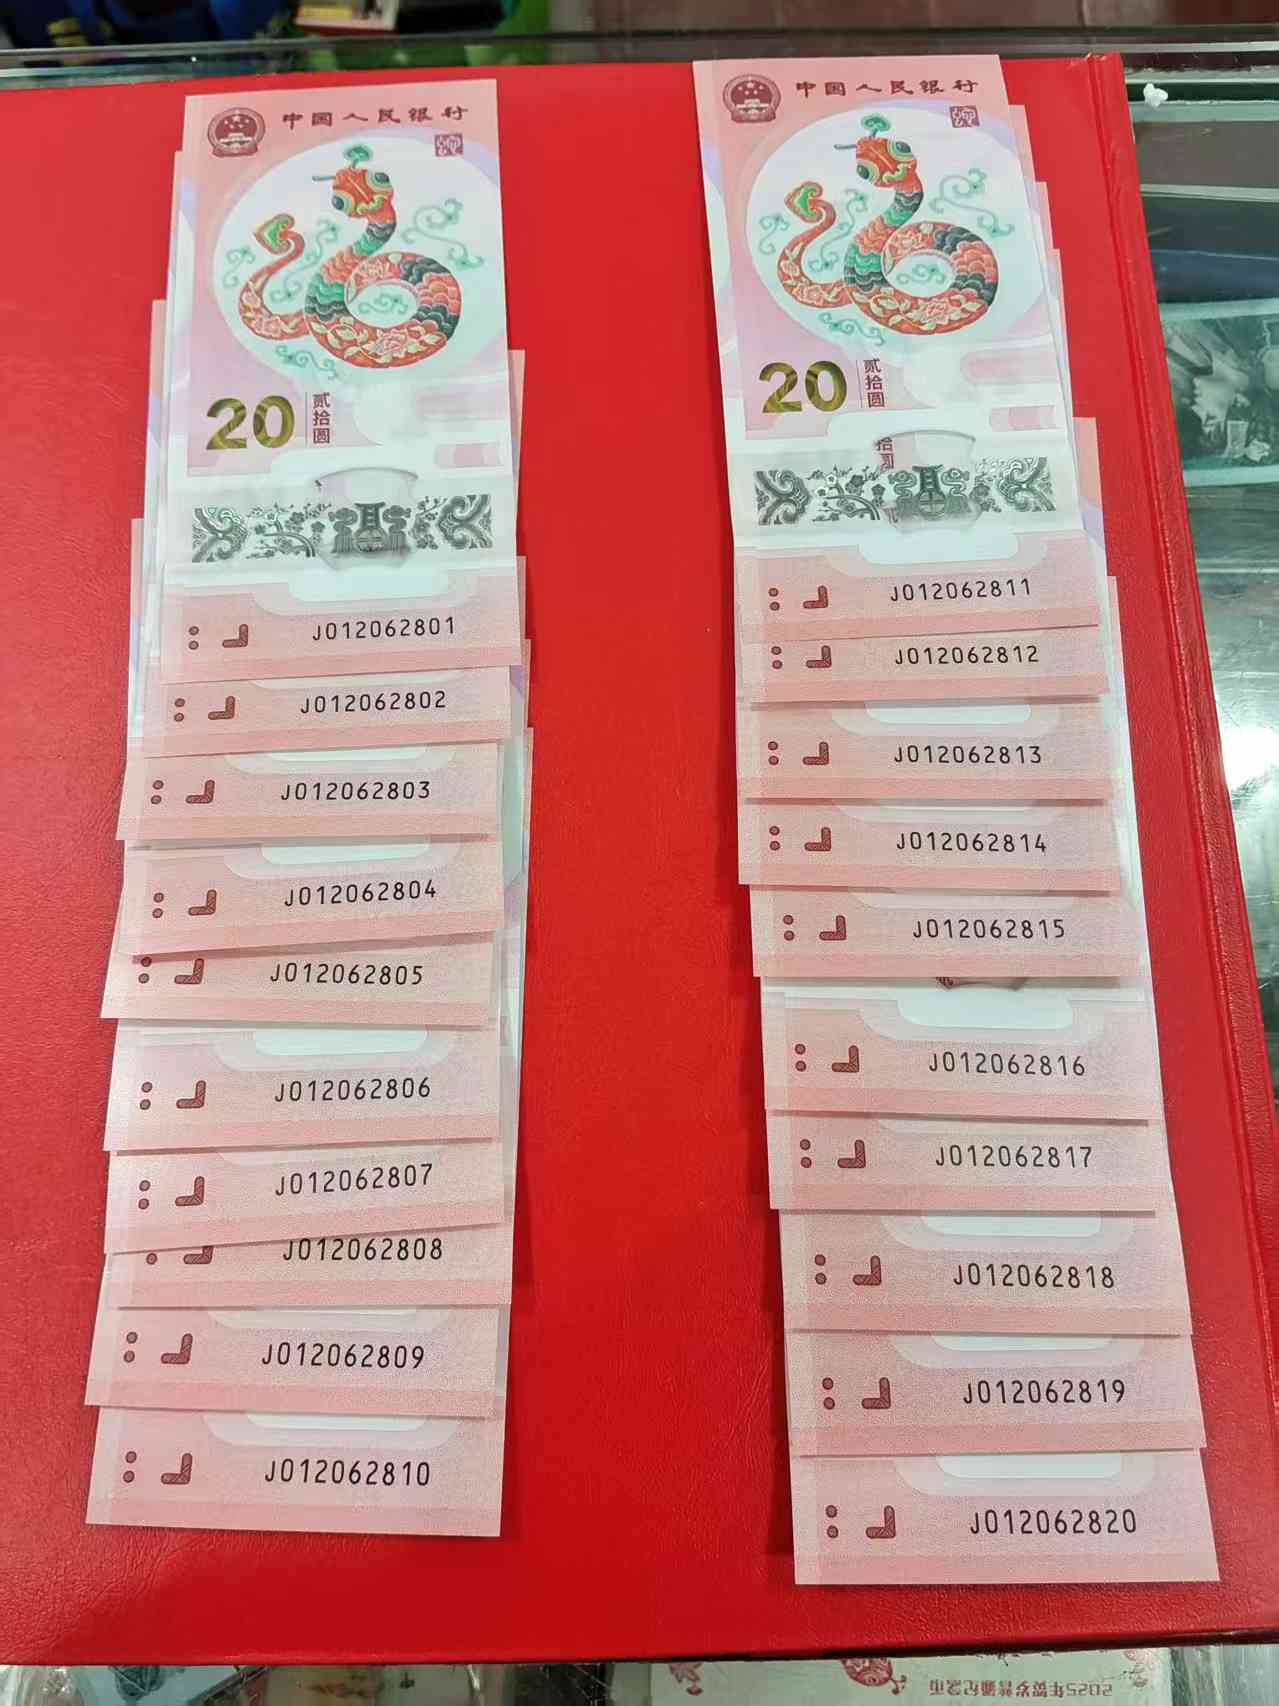 中国人民银行
20
贰拾圆
J012062801
J012062802
J012062803
J012062804
J012062805
J012062806
J012062807
J012062808
J012062809
J012062810
中国人民银行
20
贰拾圆
拾圆
J012062811
J012062812
J012062813
J012062814
J012062815
J012062816
J012062817
J012062818
J012062819
J012062820
2025年贺岁普通纪念币